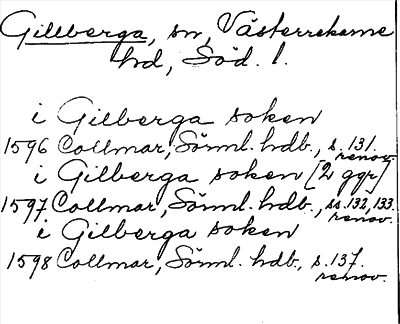 Gillberga, sn, Västerrekarne
hd, Söd. l.
i Gilberga soken
1596 Collmar, Sörml. hdb., s. 131.
renov.
i Gilberga soken [2 ggr]
1597 Collmar, Sörml. hdb., ss. 132, 133.
renov.
i Gilberga soken
1598 Collmar, Sörml. hdb., s. 137.
renov.